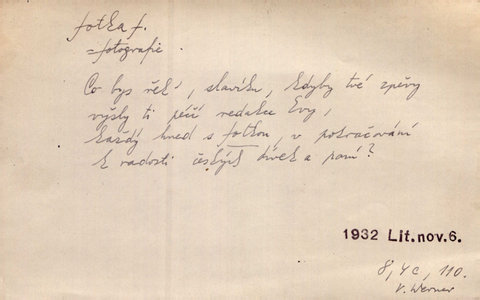 fotka f.
= fotografie.
Co bys řekl, slavíku, kdyby tvé zpěvy
vyšly ti péčí redakce Evy,
každý hned s fotkou, v pokračování
k radosti českých dívek a paní?
1932 Lit. nov. 6.
8, 4c, 110.
V. Werner